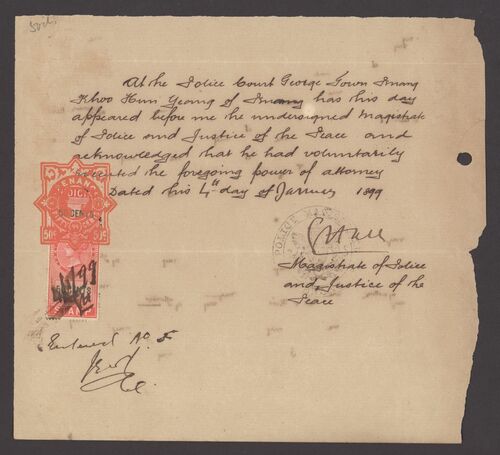 At the Police Court George Town Penang
Khoo Hun Yeang of Penang has this day
appeared before me the undersigned Magistrate
of Police and Justice of the Peace and
acknowledged that he had voluntarily
executed the foregoing power of attorney
Dated this 4th day of January 1899
PENANG
JUDICIAL
50c 50c
POLICE
Magistrate of Police
and Justice of the
Peace
Entered No 5